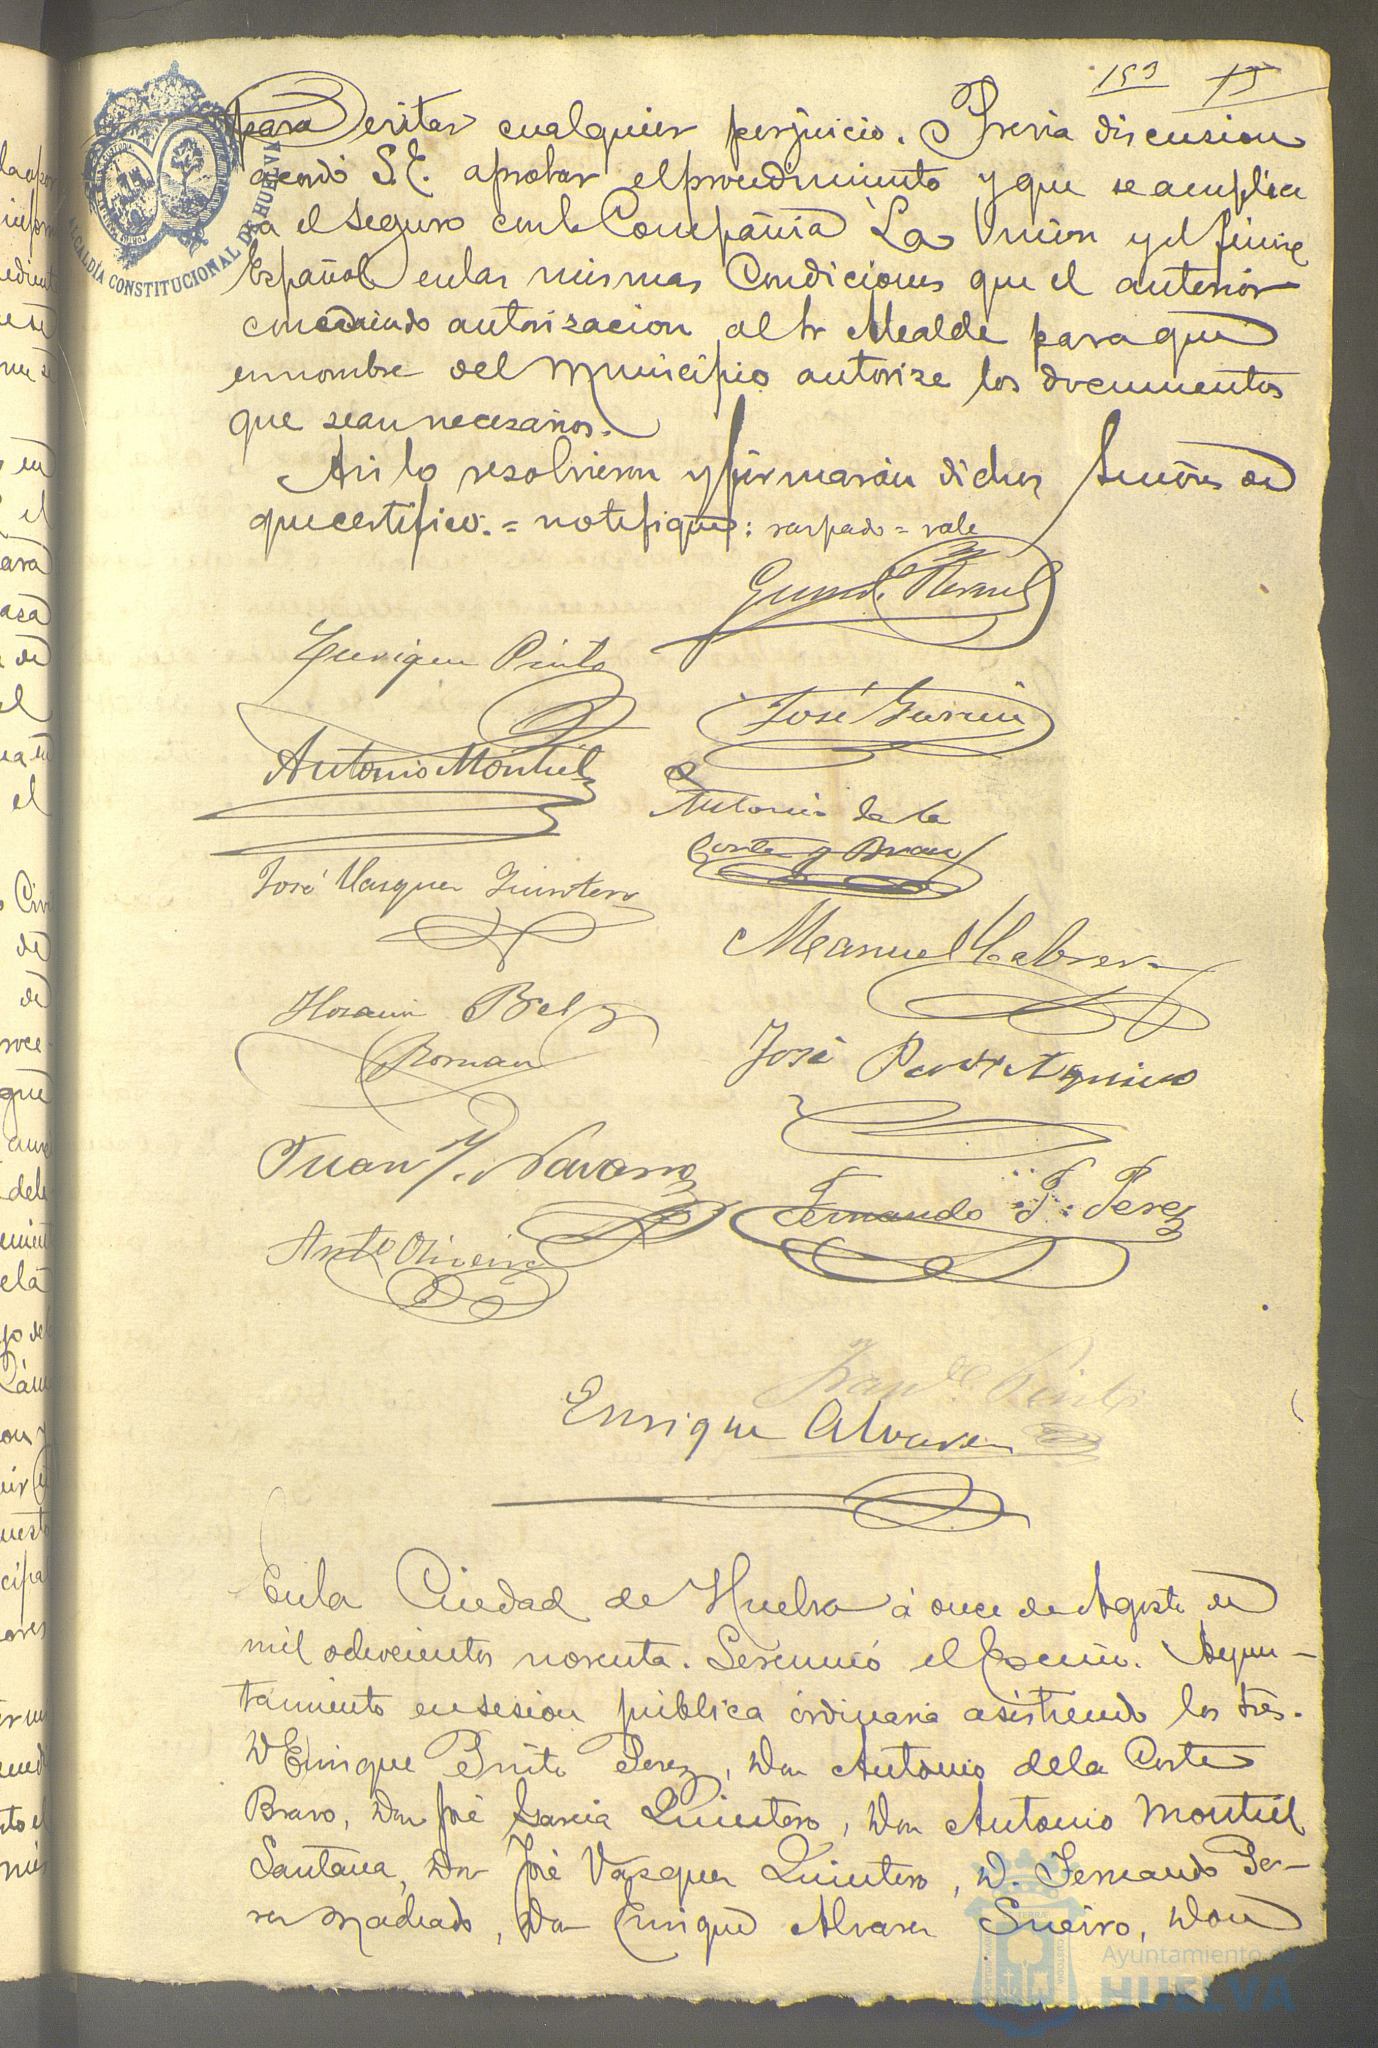 153 15
para evitar cualquier perjuicio. Previa discusion
acordó S.E. aprobar el procedimiento y que se amplie
a el seguro con la Compañia La Union y el Fenix
Español en las mismas Condiciones que el anterior
concediendo autorizacion al Sr Alcalde para que
en nombre del Municipio autorize los documentos
que sean necesarios.
Asi lo resolvieron y firmarán dichos Señores de
que certifico. = notifique: raspado = vale
Enrique Pinto
José Garcia
Antonio Montiel
Antonio de la
Corte y Bravo
José Vasquez Quintero
Manuel Cabrera
Horacio Bel
Roman
José Aquino
Juan J. Navarro
Fernando P. Perez
Ant.º Oliveira
Fran.co Pinto
Enrique Alvarez
En la Ciudad de Huelva á once de Agosto de
mil ochocientos noventa. Se reunió el Excmo. Ayun-
tamiento en sesion pública órdinaria asistiendo los Sres.
D Enrique Pinto Perez, Don Antonio de la Corte
Bravo, Don José Garcia Quintero, Don Antonio Montiel
Santana, Don José Vazquez Quintero, D. Fernando Pe-
rez Machado, Don Enrique Alvarez Sueiro, Don
ALCALDÍA CONSTITUCIONAL DE HUELVA
Ayuntamiento de
HUELVA